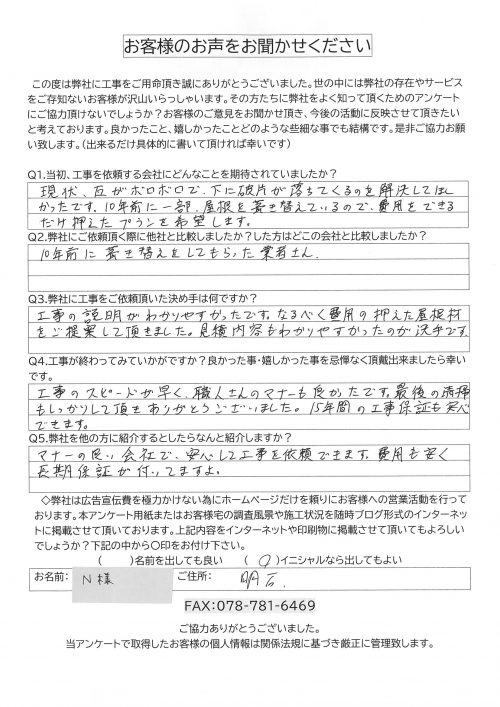 お客様のお声をお聞かせください
この度は弊社に工事をご用命頂き誠にありがとうございました。世の中には弊社の存在やサービス
をご存知ないお客様が沢山いらっしゃいます。その方たちに弊社をよく知って頂くためのアンケート
にご協力頂けないでしょうか？お客様のご意見をお聞かせ頂き、今後の活動に反映させて頂きたい
と考えております。良かったこと、嬉しかったことどのような些細な事でも結構です。是非ご協力お願
い致します。（出来るだけ具体的に書いて頂ければ幸いです）
Q1.当初、工事を依頼する会社にどんなことを期待されていましたか？
現状、瓦がボロボロで、下に破片が落ちてくるのを解決してほし
かったです。10年前に一部、屋根を葺き替えているので、費用をできる
だけ押えたプランを希望します。
Q2.弊社にご依頼頂く際に他社と比較しましたか？した方はどこの会社と比較しましたか？
10年前に葺き替えをしてもらった業者さん.
Q3.弊社に工事をご依頼頂いた決め手は何ですか？
工事の説明がわかりやすかったです。なるべく費用の押えた屋根材
をご提案して頂きました。見積内容もわかりやすかったのが決手です
Q4.工事が終わってみていかがですか？良かった事・嬉しかった事を忌憚なく頂戴出来ましたら幸い
です。
工事のスピードが早く、職人さんのマナーも良かったです。最後の清掃
もしっかりして頂きありがとうございました。15年間の工事保証も安心
できます。
Q5.弊社を他の方に紹介するとしたらなんと紹介しますか？
マナーの良い会社で、安心して工事を依頼できます。費用も安く
長期保証が付いてますよ。
◇弊社は広告宣伝費を極力かけない為にホームページだけを頼りにお客様への営業活動を行って
おります。本アンケート用紙またはお客様宅の調査風景や施工状況を随時ブログ形式のインターネッ
トに掲載させて頂いております。上記内容をインターネットや印刷物に掲載させて頂いてもよろしい
でしょうか？下記の中から〇印をお付け下さい。
（　　）名前を出しても良い　（○）イニシャルなら出してもよい
お名前： N様 ご住所： 明石.
FAX:078-781-6469
ご協力ありがとうございました。
当アンケートで取得したお客様の個人情報は関係法規に基づき厳正に管理致します。